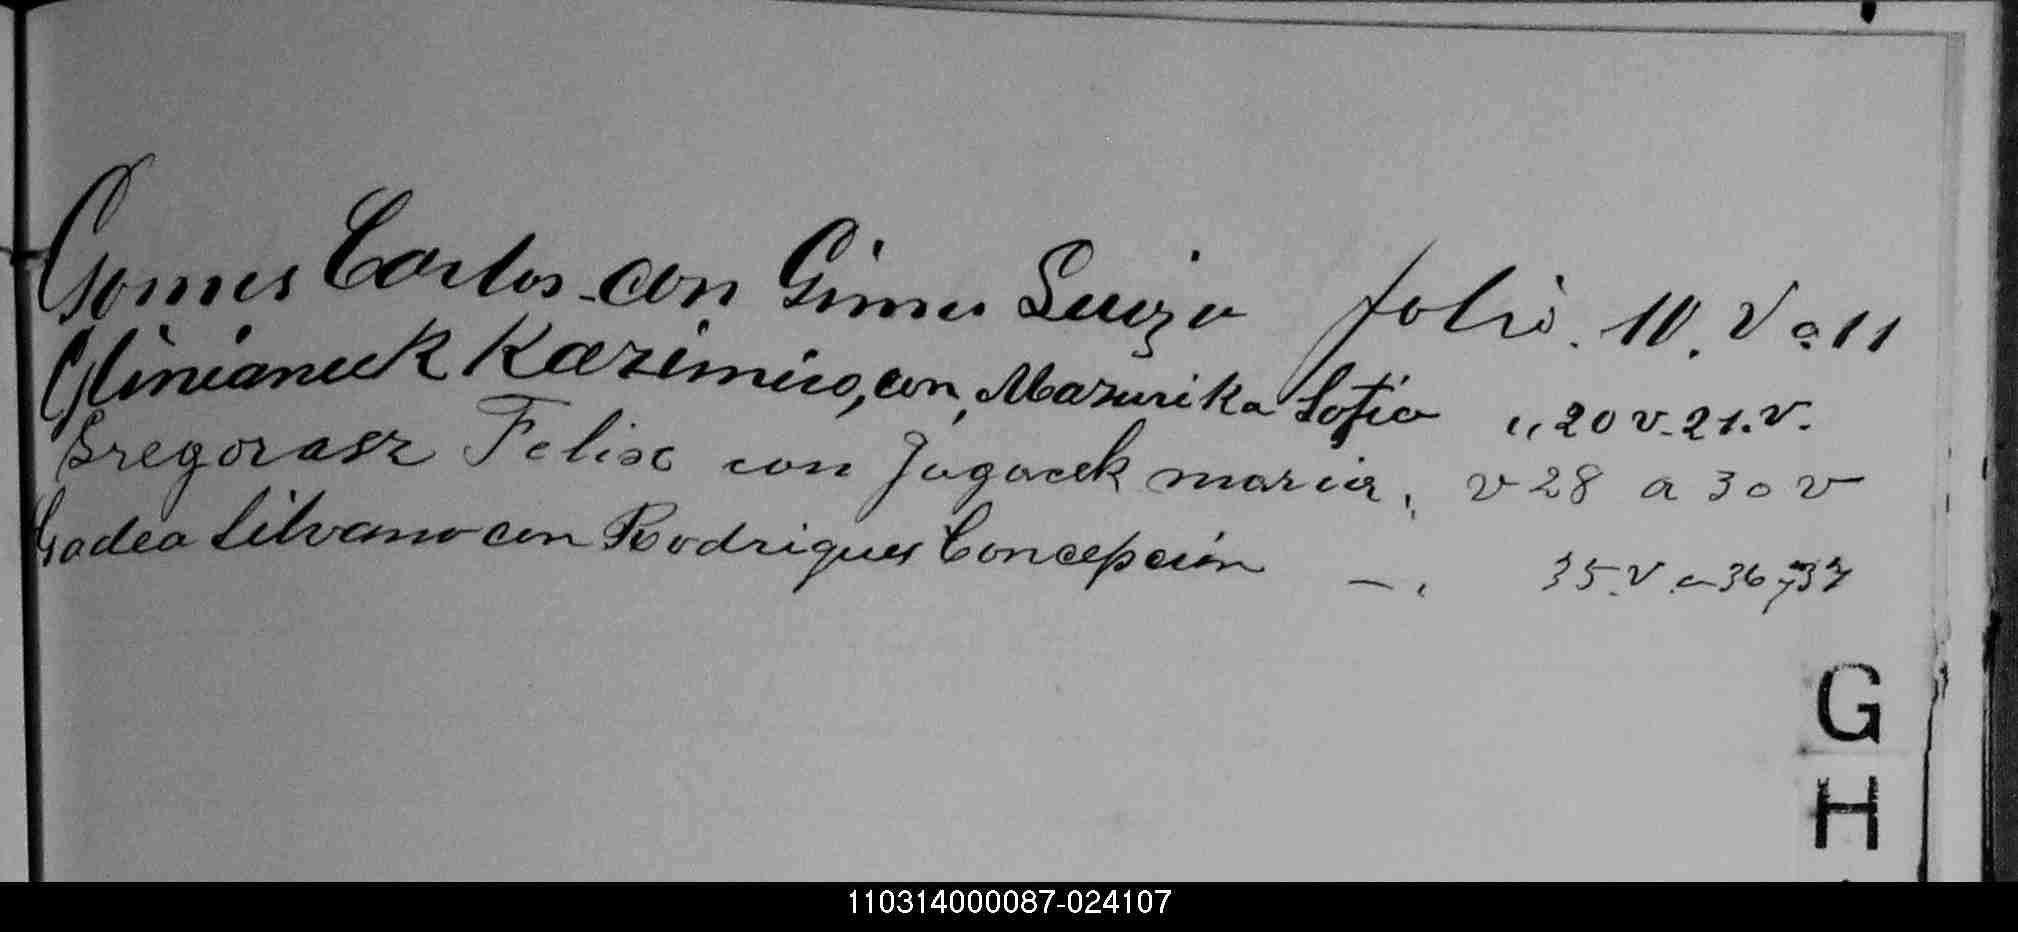 Gomes Carlos con Gimes Luiza folio. 10. V a 11
Glinianuck Kazimiro, con, Mazurika Sofia " 20 v. 21. v.
Gregorasz Felix con Jagacek maria, v 28 a 30 v
Gadea Silvano con Rodrigues Concepción — . 35. V. a 36 y 37
G
H
110314000087-024107